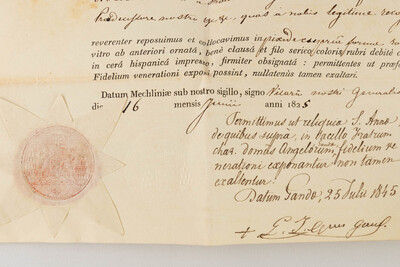 nostro quas à nobis legitime
reverenter reposuimus et collocavimus in
vitro ab anteriori ornatâ, benè clausâ et filo serico/coloris/rubri debitè
in cerâ hispanicâ impresso, firmiter obsignatâ : permittentes ut præf
Fidelium venerationi exponi possint, nullatenùs tamen exaltari.
Datum Mechliniæ sub nostro sigillo, signo Vicarii nostri Generalis
die 16 mensis Junii anni 1825
Permittimus ut reliquia S. Annæ
de quibus suprà, in Sacello Fratrum
domûs Angelorum, fidelium ve
nerationi exponantur non tamen
exaltentur.
Datum Gandæ, 25 Julii 1845
+